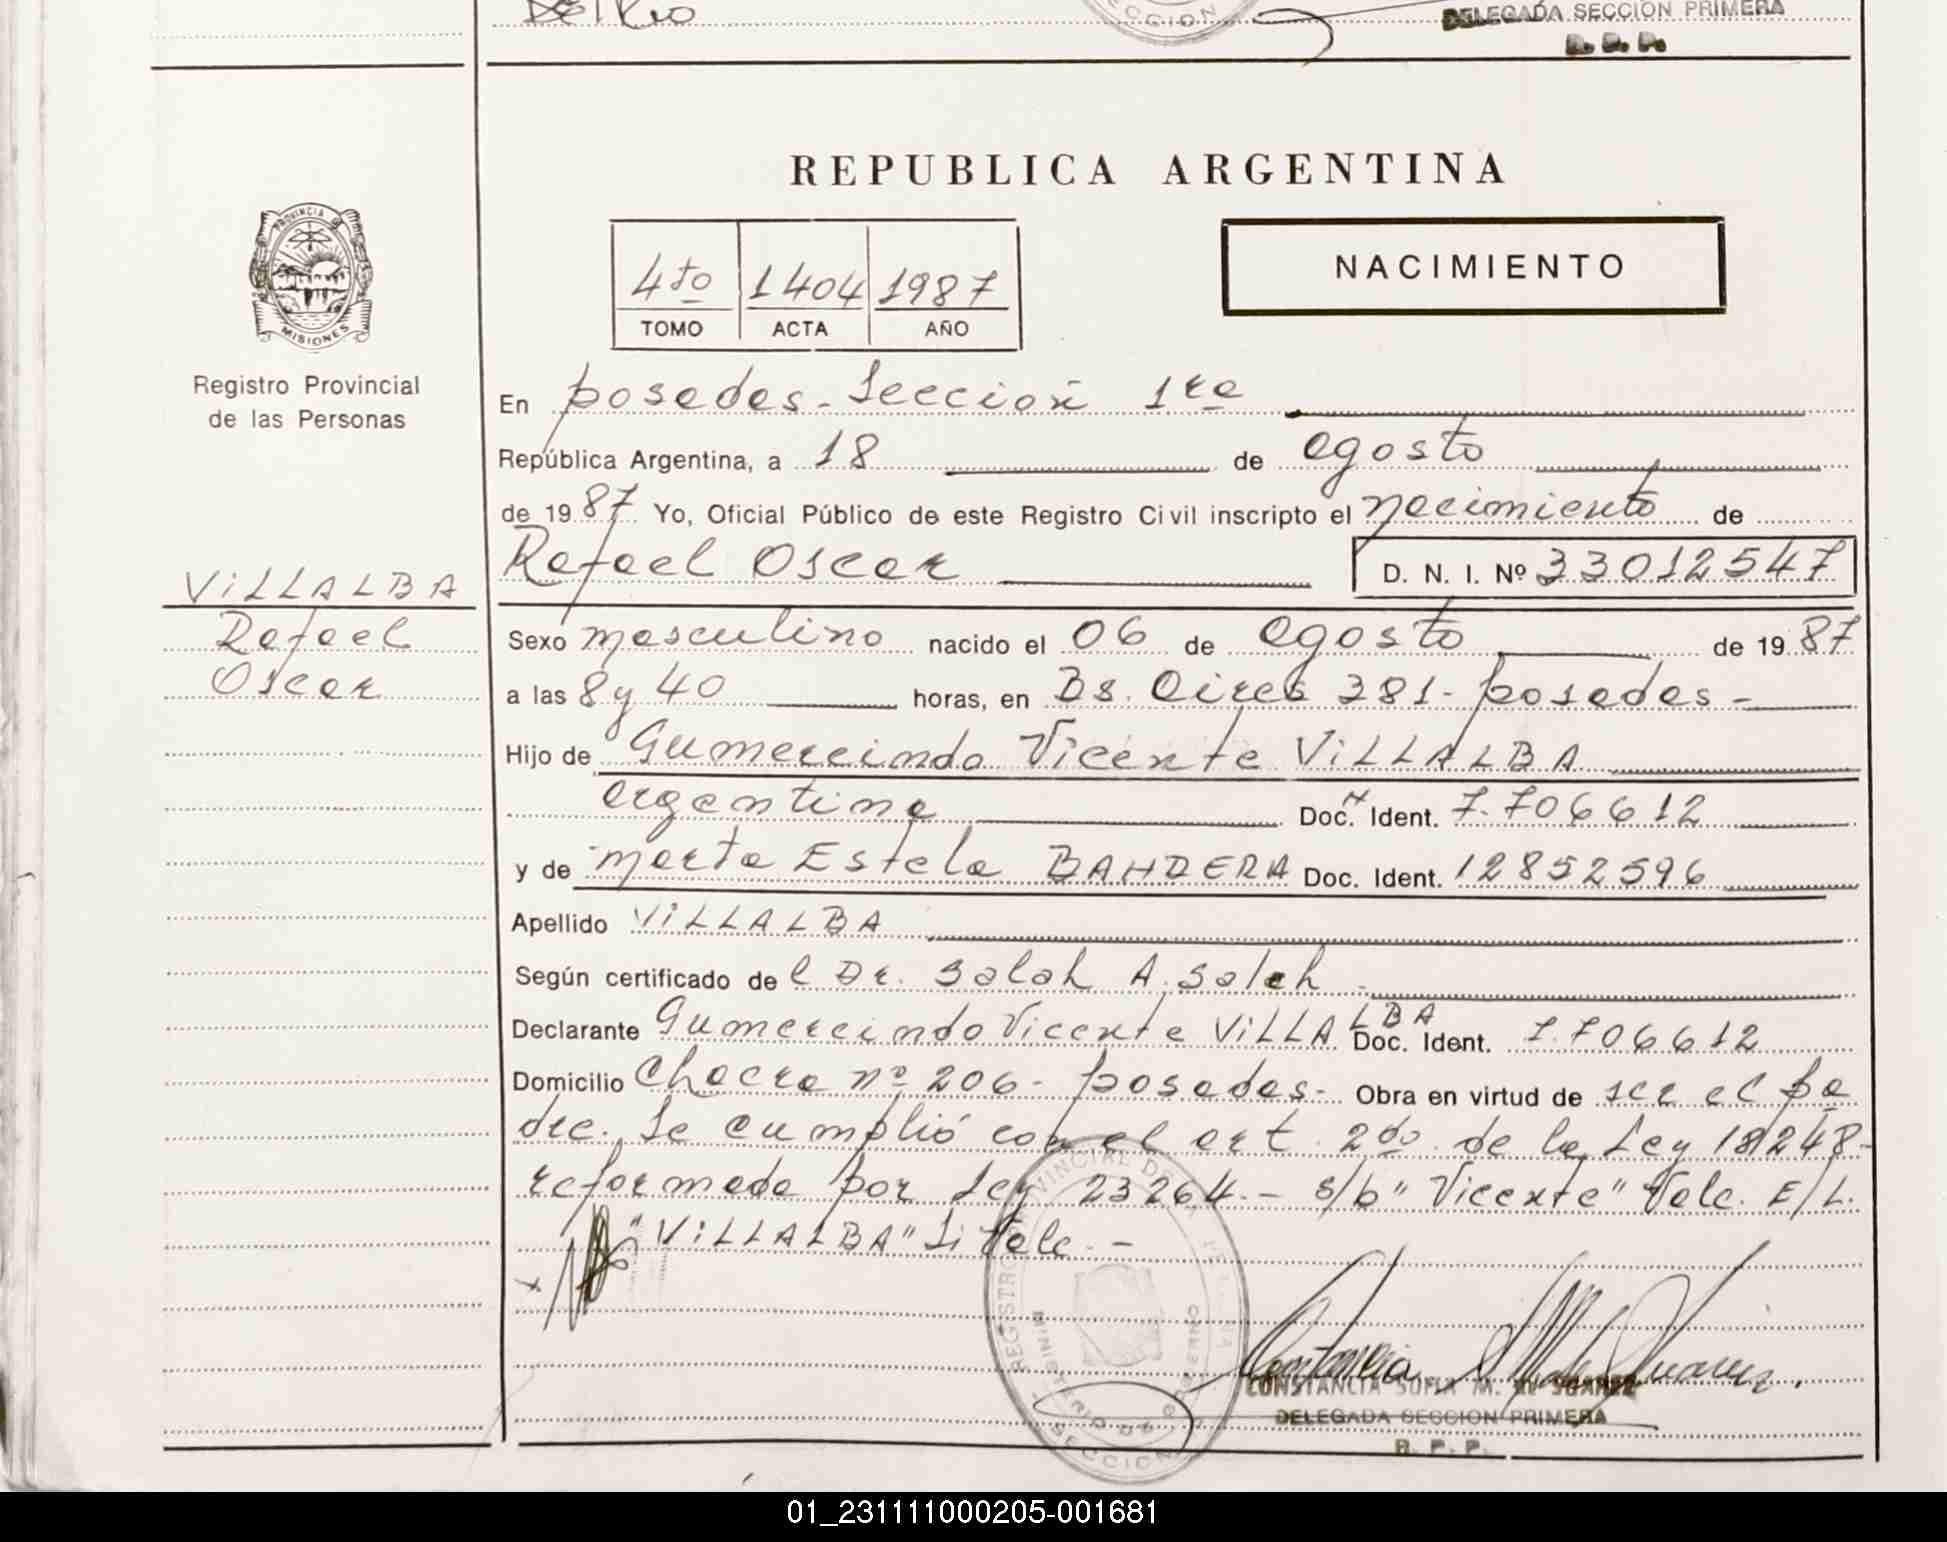 DELEGADA SECCION PRIMERA
R. P. P.
REPUBLICA ARGENTINA
PROVINCIA DE
MISIONES
Registro Provincial
de las Personas
4to 1404 1987
TOMO ACTA AÑO
NACIMIENTO
En posadas - Sección 1ra
República Argentina, a 18 de agosto
de 1987 Yo, Oficial Público de este Registro Civil inscripto el nacimiento de
Rafael Oscar D. N. I. Nº 33012547
VILLALBA
Rafael
Oscar
Sexo masculino nacido el 06 de agosto de 1987
a las 8 y 40 horas, en Bs. Aires 381 - posadas -
Hijo de Gumercindo Vicente VILLALBA
argentino Doc. Ident. 7.706612
y de marta Estela BANDERA Doc. Ident. 12852596
Apellido VILLALBA
Según certificado del Dr. Salah A. Saleh -
Declarante Gumercindo Vicente VILLALBA Doc. Ident. 7.706612
Domicilio Chacra nº 206 - posadas - Obra en virtud de ser el pa
dre. Se cumplió con el art. 2do de la Ley 18248 -
reformada por Ley 23264. - s/b "Vicente" Vale. E/L.
"VILLALBA" Si Vale. -
CONSTANCIA SOFIA M. de SUAREZ
DELEGADA SECCION PRIMERA
R. P. P.
01_231111000205-001681